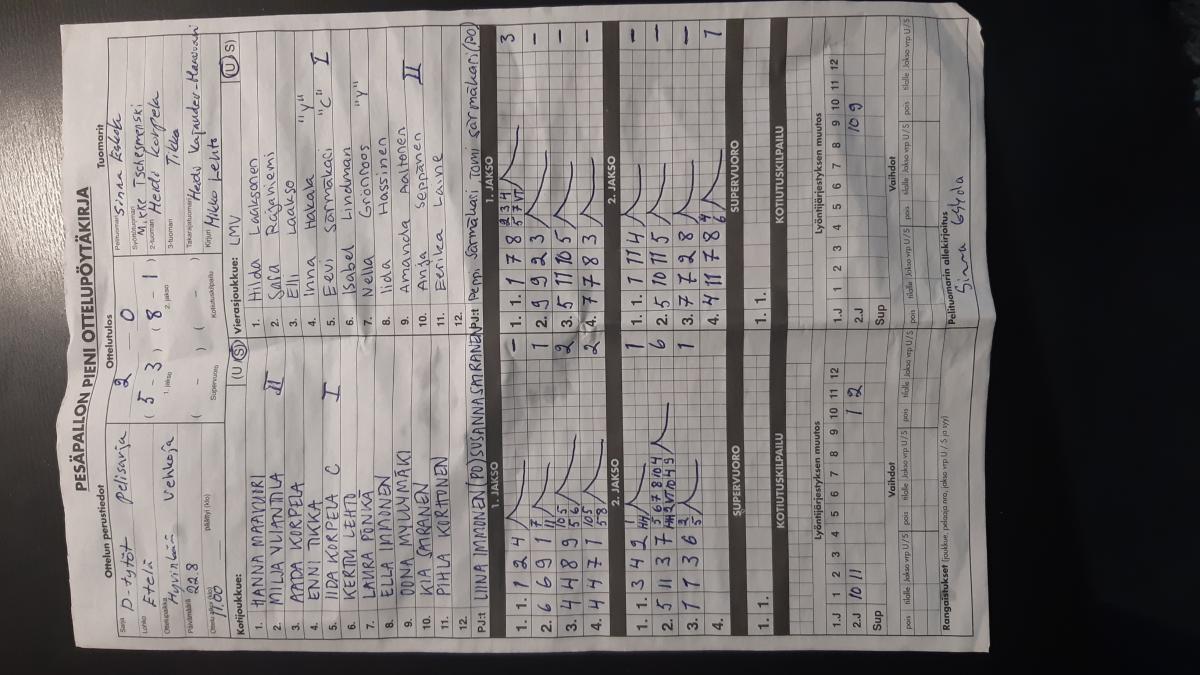 PESÄPALLON PIENI OTTELUPÖYTÄKIRJA
Ottelun perustiedot
Sarja D-tytöt pelisarja
Lohko Etelä
Ottelupaikka Hyvinkää Vehkoja
Päivämäärä 22.8
Ottelu alkoi (klo) 17.00 päättyi (klo)
Ottelutulos
2 - 0
( 5 - 3 ) ( 8 - 1 )
1. jakso 2. jakso
( - ) ( - )
Supervuoro Kotiutuskilpailu
Tuomarit
Pelituomari Sinna Eskola
Syöttötuomari
2-tuomari Heidi Korpela
3-tuomari Tikka
Takarajatuomari Heidi
Kirjuri Mikko Lehto
Kotijoukkue: (U / S)
1. HANNA MAAVUORI
2. MILLA VLIANTILA II
3. AADA KORPELA
4. ENNI TIKKA
5. IIDA KORPELA C I
6. KERTTU LEHTO
7. LAURA PONKA
8. ELLA IMMONEN
9. OONA MYLLYMÄKI
10. KIA SATRANEN
11. PIHLA KORHONEN
12.
PJ:t LIINA IMMONEN (PO) SUSANNA SATRANEN
Vierasjoukkue: LMV (U / S)
1. Hilda Laaksonen
2. Salla Rajaniemi
3. Elli Laakso
4. Inna Hakala "Y"
5. Eevi Särmäkari "C" I
6. Isabel Lindman
7. Nella Grönroos "Y"
8. Iida Hassinen
9. Amanda Aaltonen
10. Anja Seppänen II
11. Eerika Laine
12.
PJ:t Peppi Särmäkari Tomi Särmäkari (PO)
1. JAKSO
1. 1. 1 2 4 -
2. 6 6 9 1 7 11 1
3. 4 4 8 9 10 5 5 6 2
4. 4 4 7 1 10 5 5 8 2
1. JAKSO
1. 1. 1 7 8 2 3 4 5 7 VT 3
2. 9 9 2 3 -
3. 5 11 10 5 -
4. 7 7 8 3 -
2. JAKSO
1. 1. 3 4 2 1 1
2. 5 11 3 7 5 6 7 8 10 4 6
3. 1 1 3 6 2 5 1
4.
2. JAKSO
1. 1. 1 11 4 -
2. 5 10 11 5 -
3. 7 7 2 8 -
4. 4 11 7 8 4 6 1
SUPERVUORO
1. 1.
SUPERVUORO
1. 1.
KOTIUTUSKILPAILU
KOTIUTUSKILPAILU
Lyöntijärjestyksen muutos
1.J 1 2 3 4 5 6 7 8 9 10 11 12
2.J 10 11 1 2
Sup
Lyöntijärjestyksen muutos
1.J 1 2 3 4 5 6 7 8 9 10 11 12
2.J 10 9
Sup
Vaihdot
pois tilalle Jakso vrp U / S pois tilalle Jakso vrp U / S pois tilalle Jakso vrp U / S
Vaihdot
pois tilalle Jakso vrp U / S pois tilalle Jakso vrp U / S pois tilalle Jakso vrp U / S
Rangaistukset (joukkue, pelaaja nro, jakso vrp U / S ja syy)
Pelituomarin allekirjoitus
Sinna Eskola